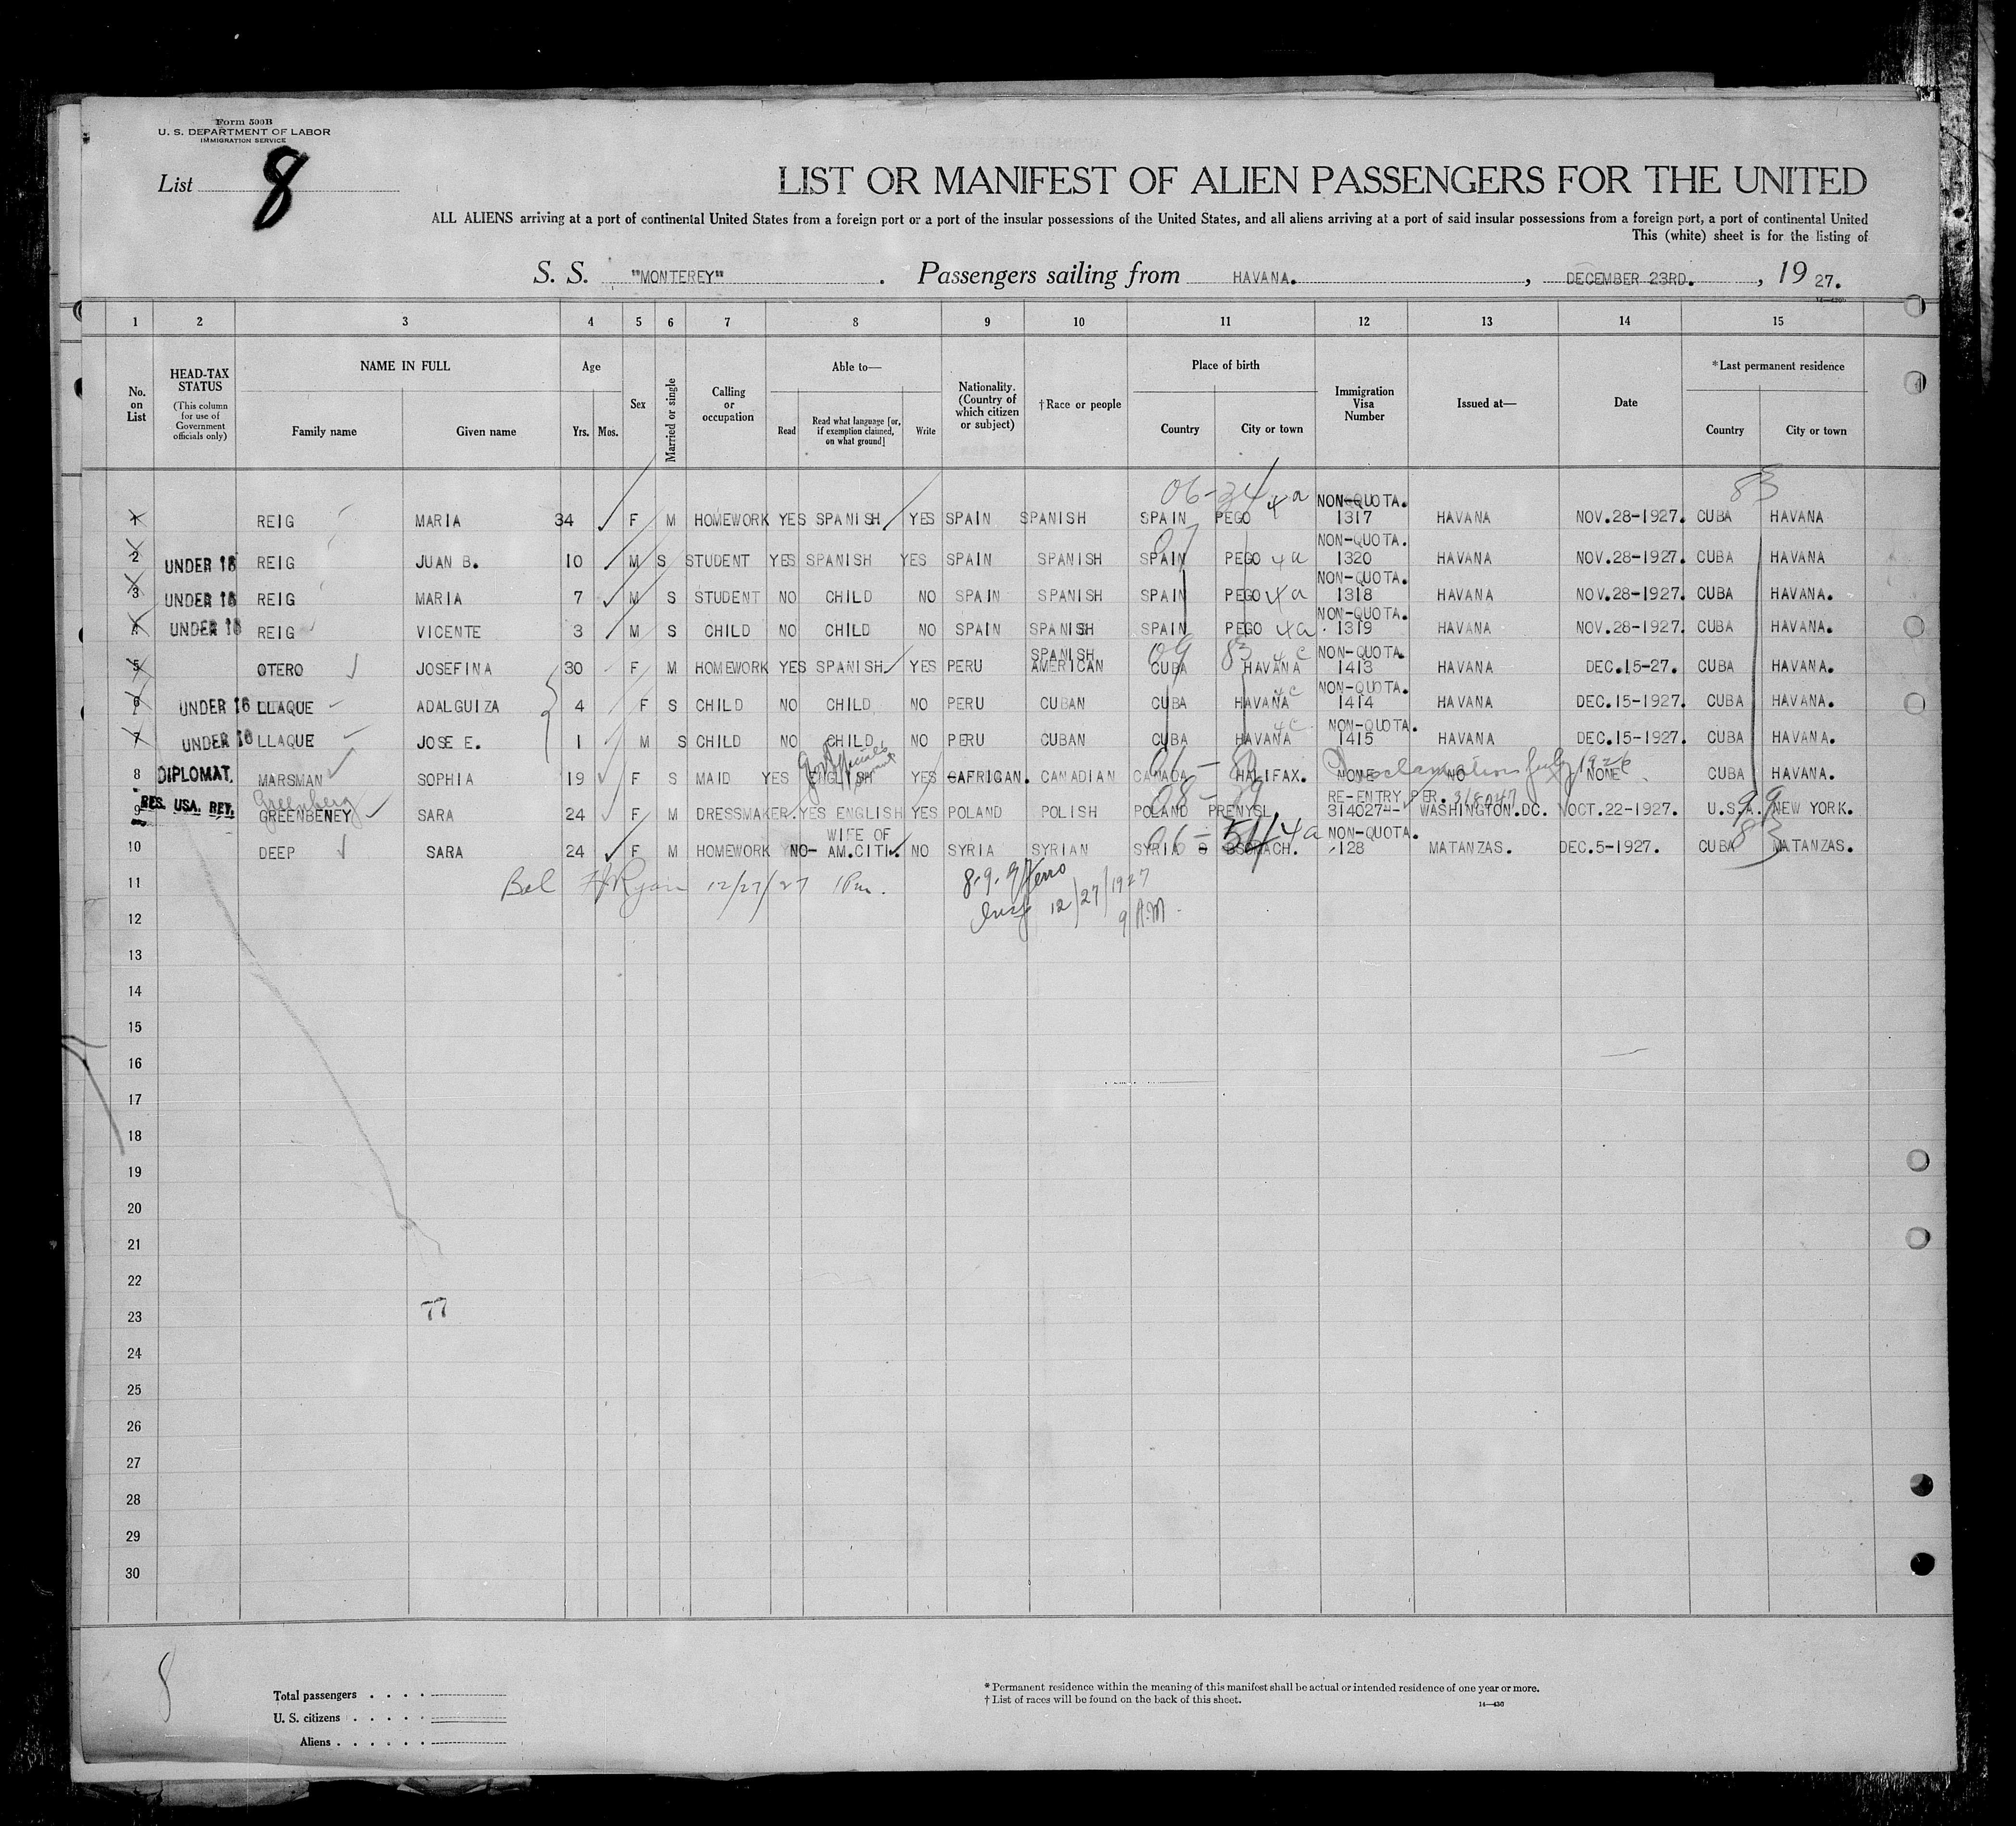 Form 500B
U. S. DEPARTMENT OF LABOR
IMMIGRATION SERVICE
List 8
LIST OR MANIFEST OF ALIEN PASSENGERS FOR THE UNITED
ALL ALIENS arriving at a port of continental United States from a foreign port or a port of the insular possessions of the United States, and all aliens arriving at a port of said insular possessions from a foreign port, a port of continental United
This (white) sheet is for the listing of
S. S. "MONTEREY" . Passengers sailing from HAVANA. , DECEMBER 23RD. , 19 27.
1 2 3 4 5 6 7 8 9 10 11 12 13 14 15
No. on List
HEAD-TAX STATUS (This column for use of Government officials only)
NAME IN FULL
Family name Given name
Age
Yrs. Mos.
Sex
Married or single
Calling or occupation
Able to—
Read Read what language [or, if exemption claimed, on what ground] Write
Nationality. (Country of which citizen or subject)
†Race or people
Place of birth
Country City or town
Immigration Visa Number
Issued at—
Date
*Last permanent residence
Country City or town
06-34 4a 83
NON-QUOTA.
1 REIG MARIA 34 F M HOMEWORK YES SPANISH YES SPAIN SPANISH SPAIN PEGO 1317 HAVANA NOV.28-1927. CUBA HAVANA
NON-QUOTA.
2 UNDER 16 REIG JUAN B. 10 M S STUDENT YES SPANISH YES SPAIN SPANISH SPAIN PEGO 4a 1320 HAVANA NOV.28-1927. CUBA HAVANA
NON-QUOTA.
3 UNDER 16 REIG MARIA 7 M S STUDENT NO CHILD NO SPAIN SPANISH SPAIN PEGO 4a 1318 HAVANA NOV.28-1927. CUBA HAVANA.
NON-QUOTA.
4 UNDER 16 REIG VICENTE 3 M S CHILD NO CHILD NO SPAIN SPANISH SPAIN PEGO 4a 1319 HAVANA NOV.28-1927. CUBA HAVANA.
SPANISH 09 83 4c NON-QUOTA.
5 OTERO JOSEFINA 30 F M HOMEWORK YES SPANISH YES PERU AMERICAN CUBA HAVANA 1413 HAVANA DEC.15-27. CUBA HAVANA.
4c NON-QUOTA.
6 UNDER 16 LLAQUE ADALGUIZA 4 F S CHILD NO CHILD NO PERU CUBAN CUBA HAVANA 1414 HAVANA DEC.15-1927. CUBA HAVANA.
4c NON-QUOTA.
7 UNDER 16 LLAQUE JOSE E. 1 M S CHILD NO CHILD NO PERU CUBAN CUBA HAVANA 1415 HAVANA DEC.15-1927. CUBA HAVANA.
8 DIPLOMAT. MARSMAN SOPHIA 19 F S MAID YES ENGLISH YES AFRICAN. CANADIAN CANADA HALIFAX. NONE NO NONE CUBA HAVANA.
July 1926
Greenberg 08-39 RE-ENTRY PER. 318047 99
9 RES. USA. RET. GREENBENEY SARA 24 F M DRESSMAKER. YES ENGLISH YES POLAND POLISH POLAND PRENYSL 314027 WASHINGTON.DC. OCT.22-1927. U.S.A. NEW YORK.
WIFE OF 06-54 4a NON-QUOTA. 83
10 DEEP SARA 24 F M HOMEWORK NO- AM.CITI. NO SYRIA SYRIAN SYRIA 128 MATANZAS. DEC.5-1927. CUBA MATANZAS.
11 Ryan 12/27/27 1 Pm. 8.9.
12 12/27/1927
9 A.M.
13
14
15
16
17
18
19
20
21
22
23 77
24
25
26
27
28
29
30
8
Total passengers
U. S. citizens
Aliens
* Permanent residence within the meaning of this manifest shall be actual or intended residence of one year or more.
† List of races will be found on the back of this sheet.
14—430